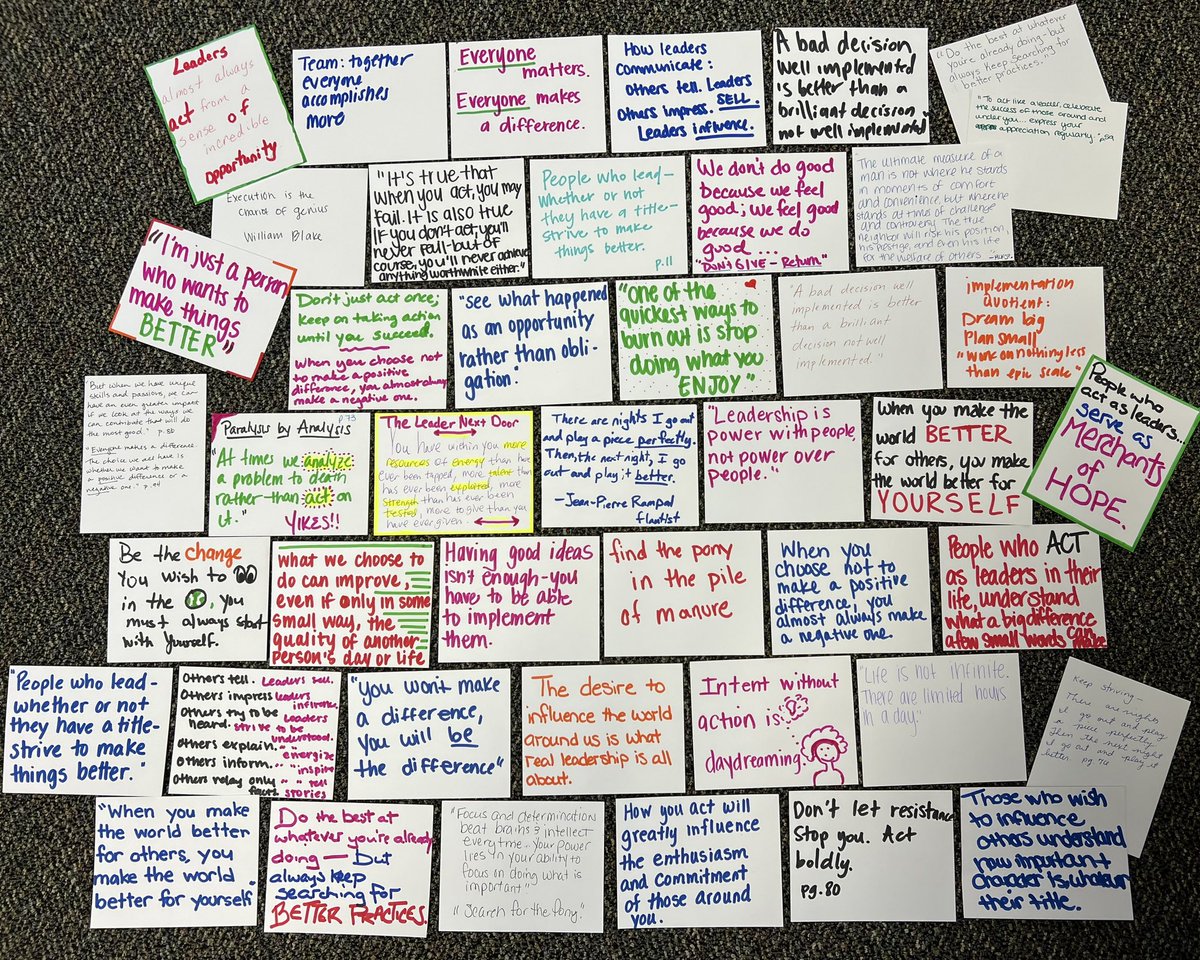 Leaders
almost always
act from a
sense of
incredible
opportunity.
Team: together
everyone
accomplishes
more
Everyone
matters.
Everyone makes
a difference.
How leaders
communicate:
Others tell. Leaders
SELL.
Others impress.
Leaders influence.
A bad decision,
well implemented
is better than a
brilliant decision
not well implemented
"Do the best at whatever
you're already doing - but
always keep searching for
better practices."
"To act like a leader, celebrate
the success of those around and
under you... express your
appreciation regularly."
Execution is the
chariot of genius
William Blake
"It's true that
when you act, you may
fail. It is also true
if you don't act, you'll
never fail - but of
course, you'll never achieve
anything worthwhile either."
People who lead -
whether or not
they have a title -
strive to make
things better.
p.11
We don't do good
because we feel
good; we feel good
because we do
good ...
"Don't GIVE - Return"
The ultimate measure of a
man is not where he stands
in moments of comfort
and convenience, but where he
stands at times of challenge
and controversy. The true
neighbor will risk his position,
his prestige, and even his life
for the welfare of others
"I'm just a person
who wants to
make things
BETTER"
Don't just act once;
keep on taking action
until you succeed.
When you choose not
to make a positive
difference, you almost always
make a negative one.
"see what happened
as an opportunity
rather than obli-
gation."
"One of the
quickest ways to
burn out is stop
doing what you
ENJOY"
"A bad decision well
implemented is better
than a brilliant
decision not well
implemented."
implementation
quotient:
Dream big
Plan small
"Work on nothing less
than epic scale"
"But when we have unique
skills and passions, we can
have an even greater impact
if we look at the ways we
can contribute that will do
the most good." p. 80
"Everyone makes a difference
The choice we all have is
whether we want to make
a positive difference or a
negative one."
p.73
Paralysis by Analysis
"At times we analyze
a problem to death
rather than act on
it."
YIKES!!
The Leader Next Door
You have within you more
resources of energy than have
ever been tapped, more talent than
has ever been exploited, more
strength than has ever been
tested, more to give than you
have ever given.
There are nights I go out
and play a piece perfectly.
Then, the next night, I go
out and play it better.
-Jean-Pierre Rampal
flautist
"Leadership is
power with people,
not power over
people."
When you make the
world BETTER
for others, you make
the world better for
YOURSELF
People who
act as leaders...
serve as
Merchants
of
HOPE.
Be the change
You wish to
in the , you
must always start
with yourself.
what we choose to
do can improve,
even if only in some
small way, the
quality of another
person's day or life
Having good ideas
isn't enough - you
have to be able
to implement
them.
find the pony
in the pile
of manure
When you
choose not to
make a positive
difference, you
almost always make
a negative one.
People who ACT
as leaders in their
life, understand
what a big difference
a few small words can make
"People who lead -
whether or not
they have a title -
strive to make
things better."
Others tell. Leaders sell.
Others impress leaders influence.
Others try to be heard. Leaders strive to be understood.
others explain. " " energize
others inform. " " inspire
others relay only facts. " " tell stories
"you won't make
a difference,
you will be
the difference"
The desire to
influence the world
around us is what
real leadership is all
about.
Intent without
action is
daydreaming.
"Life is not infinite.
There are limited hours
in a day."
Keep striving -
There are nights
I go out and play
a piece perfectly.
Then the next night
I go out and play it
better. pg 76
"When you make
the world better
for others, you
make the world
better for yourself"
Do the best at
whatever you're already
doing - but
always keep
searching for
BETTER PRACTICES.
"Focus and determinations
beat brains & intellect
everytime - your power
lies in your ability to
focus on doing what is
important"
"Search for the Pony."
How you act will
greatly influence
the enthusiasm
and commitment
of those around
you.
Don't let resistance
stop you. Act
boldly.
pg.80
Those who wish
to influence
others understand
how important
character is whatever
their title.